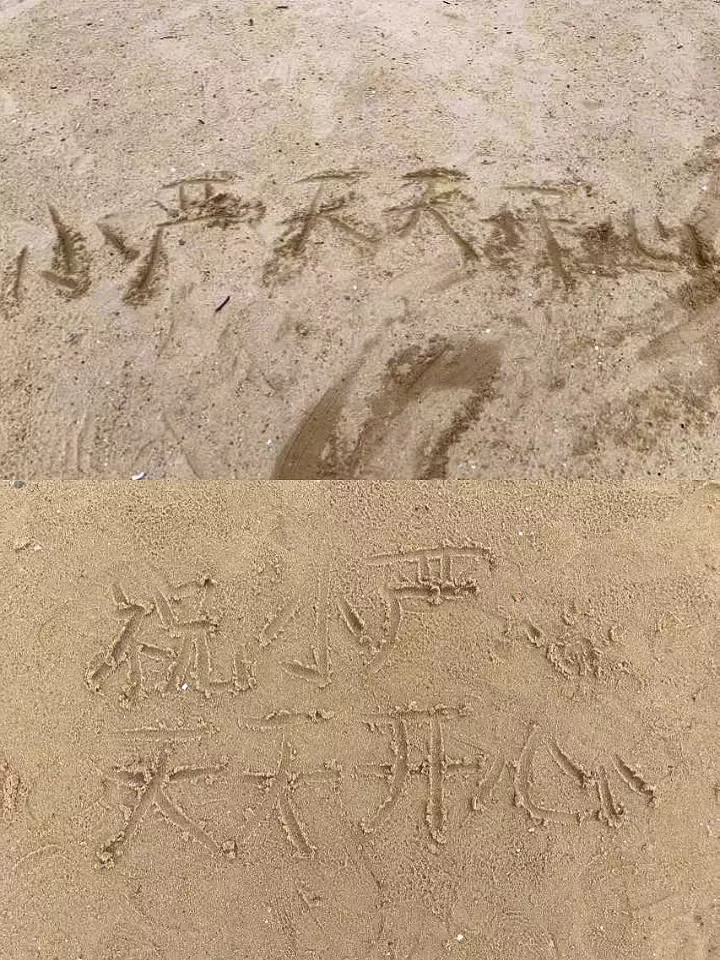 小严天天开心
祝小严
天天开心